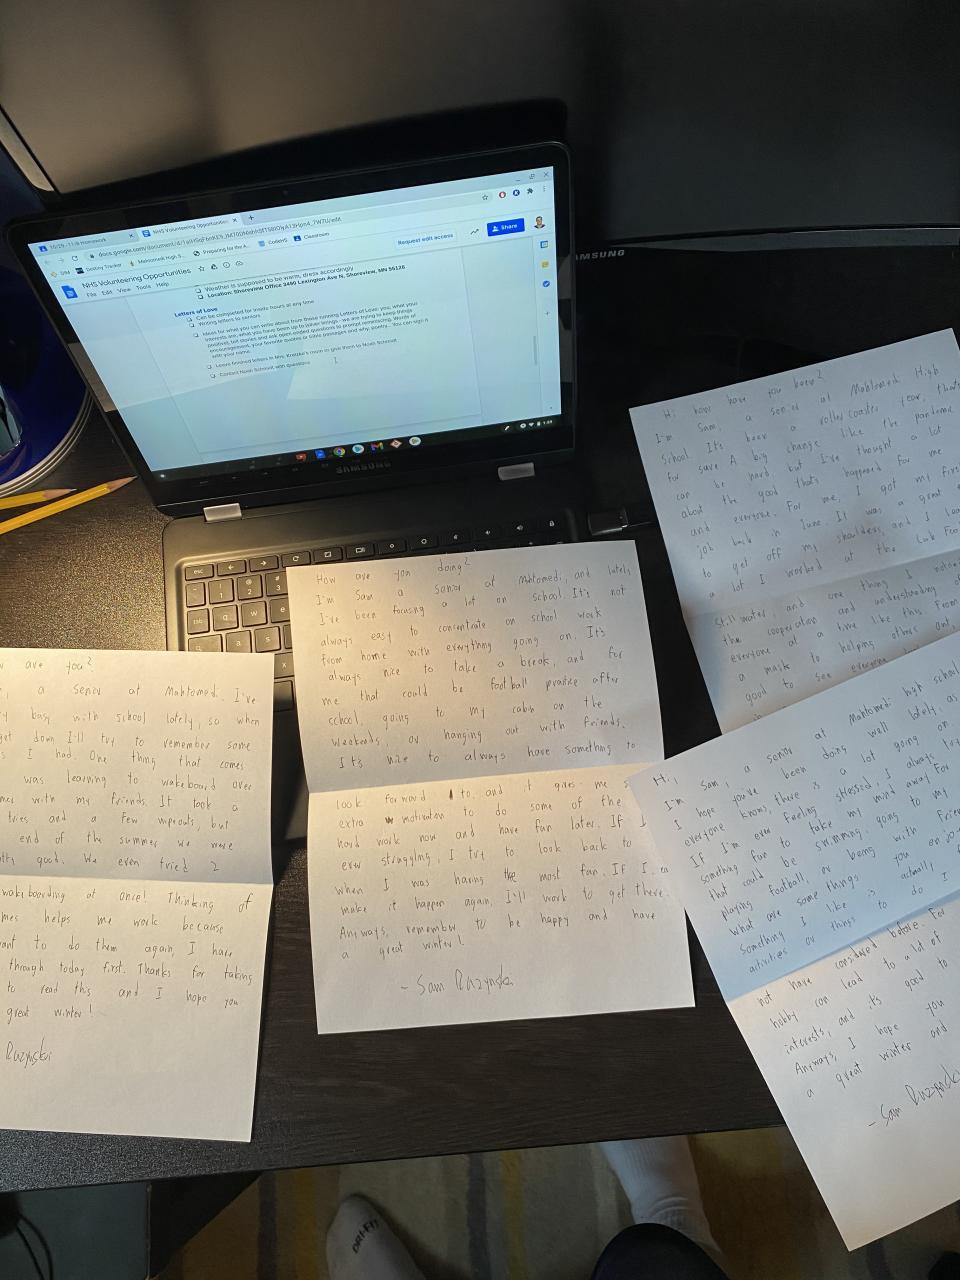 10/29 - 11/6 Homework
NHS Volunteering Opportunities
docs.google.com/document/d/
SIM
Destiny Tracker
Mahtomedi High S...
Preparing for the A...
CodeHS
Classroom
NHS Volunteering Opportunities
File Edit View Tools Help
Request edit access
Share
Weather is supposed to be warm, dress accordingly
Location: Shoreview Office 3490 Lexington Ave N, Shoreview, MN 55126
Letters of Love
Can be completed for inside hours at any time
Writing letters to seniors
Ideas for what you can write about from those running Letters of Love: you, what your
interests are, what you have been up to (silver linings - we are trying to keep things
positive), tell stories and ask open ended questions to prompt reminiscing. Words of
encouragement, your favorite quotes or bible passages and why, poetry... You can sign it
with your name.
Leave finished letters in Mrs. room to give them to Noah Schmidt
Contact Noah Schmidt with questions
SAMSUNG
AMSUNG
esc
tab
Hi how have you been?
I'm Sam, a senior at Mahtomedi High
school. It's been a rollercoaster year, that's
for sure. A big change like the pandemic
can be hard but I've thought a lot
about the good that's happened for me
and everyone. For me, I got my first
job back in June. It was a great
to get off my shoulders, and I
a lot. I worked at the
Stillwater, and one thing I
the cooperation and understanding of
everyone at a time like this. From
a mask to helping others out,
good to see everyone
How are you doing?
I'm Sam a senior at Mahtomedi, and lately
I've been focusing a lot on school. It's not
always easy to concentrate on school work
from home with everything going on. It's
always nice to take a break, and for
me that could be football practice after
school, going to my cabin on the
weekends, or hanging out with friends.
It's nice to always have something to
look forward to, and it gives me
extra motivation to do some of the
hard work now and have fun later. If I
ever struggling, I try to look back to
when I was having the most fun. If I
make it happen again, I'll work to get there.
Anyways, remember to be happy and have
a great winter!
- Sam Ruzynski
are you?
a senior at Mahtomedi. I've
busy with school lately, so when
get down I'll try to remember some
I had. One thing that comes
was learning to wakeboard over
with my friends. It took a
tries and a few wipeouts, but
end of the summer we were
good. We even tried 2
wakeboarding at once! Thinking of
helps me work because
want to do them again, I have
through today first. Thanks for taking
to read this and I hope you
great winter!
Ruzynski
Hi,
I'm Sam, a senior at Mahtomedi high school
I hope you've been doing well lately, as
everyone knows there is a lot going on.
If I'm ever feeling stressed, I always try
something fun to take my mind away for
that could be swimming, going to my
playing football, or being with
What are some things you enjoy
Something I like is actually
activities or things to do I
not have considered before. For
hobby can lead to a lot of
interests, and its good to
Anyways, I hope you
a great winter and
- Sam Ruzynski
DRI-FIT